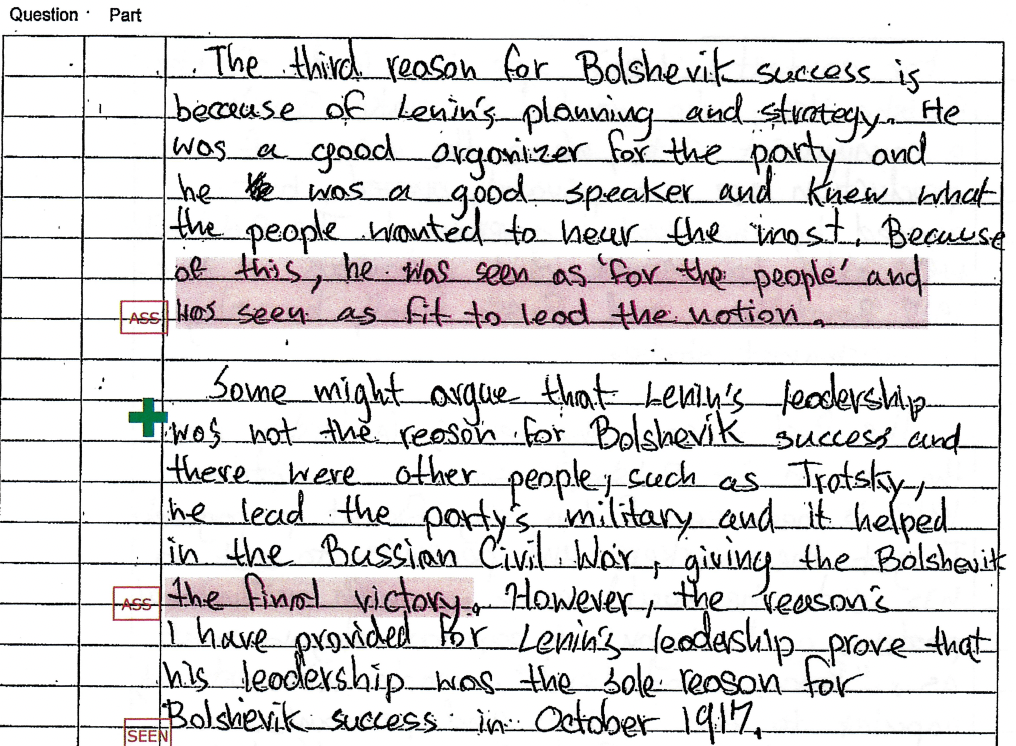 Question Part
The third reason for Bolshevik success is
because of Lenin's planning and strategy. He
was a good organizer for the party and
he was a good speaker and knew what
the people wanted to hear the most. Because
of this, he was seen as 'for the people' and
ASS was seen as fit to lead the nation.
Some might argue that Lenin's leadership
was not the reason for Bolshevik success and
there were other people, such as Trotsky,
he lead the party's military and it helped
in the Russian Civil War, giving the Bolshevik
ASS the final victory. However, the reason's
I have provided for Lenin's leadership prove that
his leadership was the sole reason for
Bolshevik success in October 1917.
SEEN